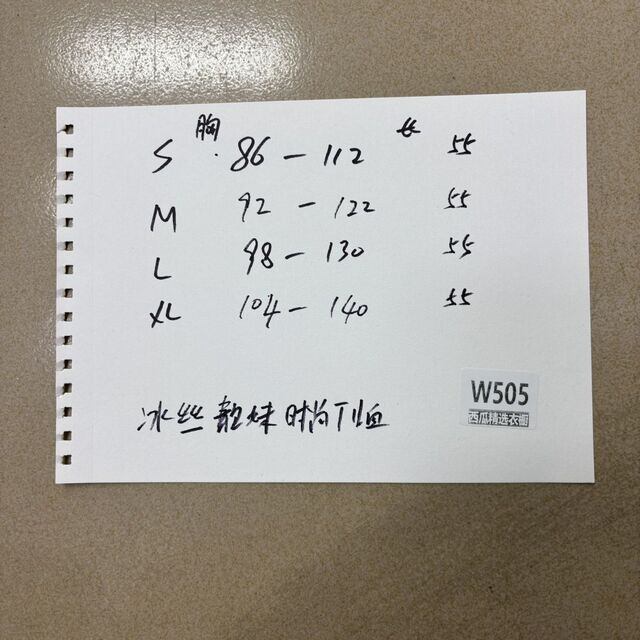 胸 长
S 86 - 112 55
M 92 - 122 55
L 98 - 130 55
XL 104 - 140 55
冰丝 软妹 时尚T恤
W505
西瓜精选衣橱